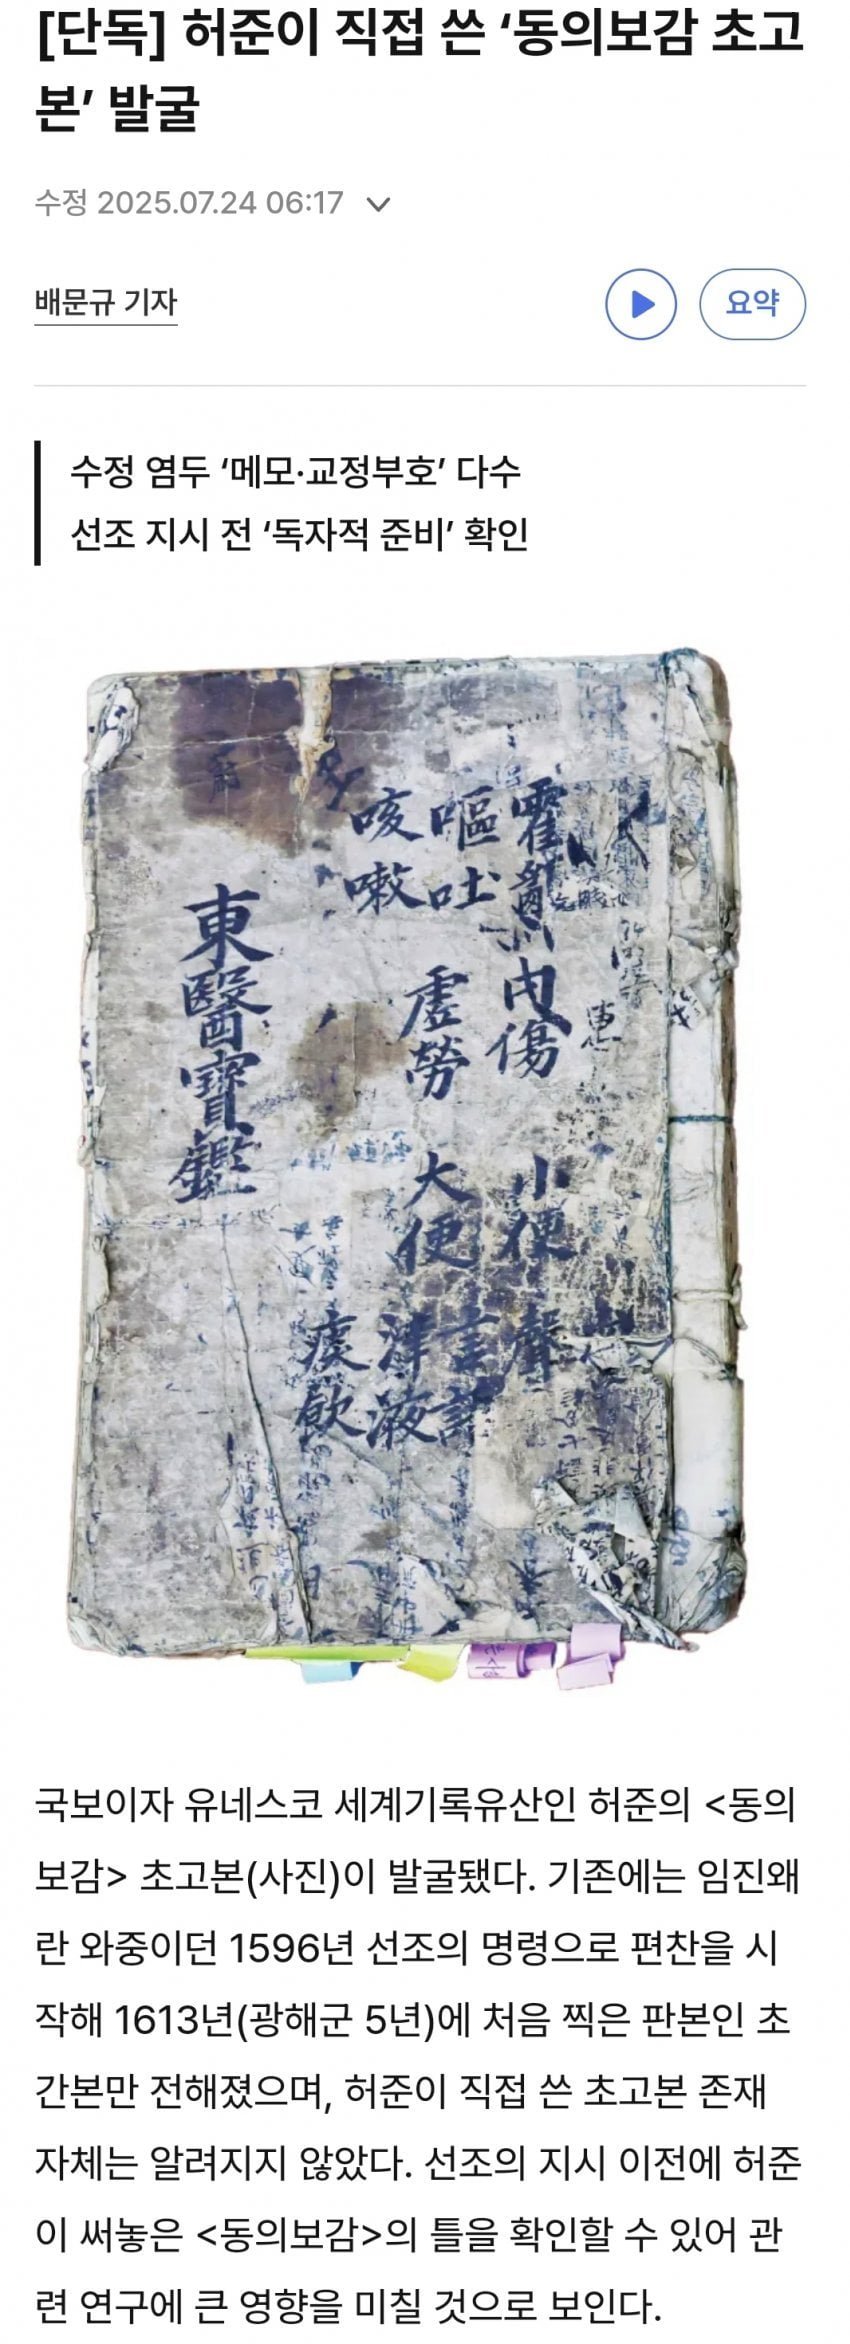 [단독] 허준이 직접 쓴 ‘동의보감 초고
본’ 발굴
수정 2025.07.24 06:17
배문규 기자
요약
수정 염두 ‘메모·교정부호’ 다수
선조 지시 전 ‘독자적 준비’ 확인
霍亂 內傷
嘔吐 虛勞
咳嗽
小便 聲
大便 言語
津液
痰飮
東醫寶鑑
국보이자 유네스코 세계기록유산인 허준의 <동의
보감> 초고본(사진)이 발굴됐다. 기존에는 임진왜
란 와중이던 1596년 선조의 명령으로 편찬을 시
작해 1613년(광해군 5년)에 처음 찍은 판본인 초
간본만 전해졌으며, 허준이 직접 쓴 초고본 존재
자체는 알려지지 않았다. 선조의 지시 이전에 허준
이 써놓은 <동의보감>의 틀을 확인할 수 있어 관
련 연구에 큰 영향을 미칠 것으로 보인다.